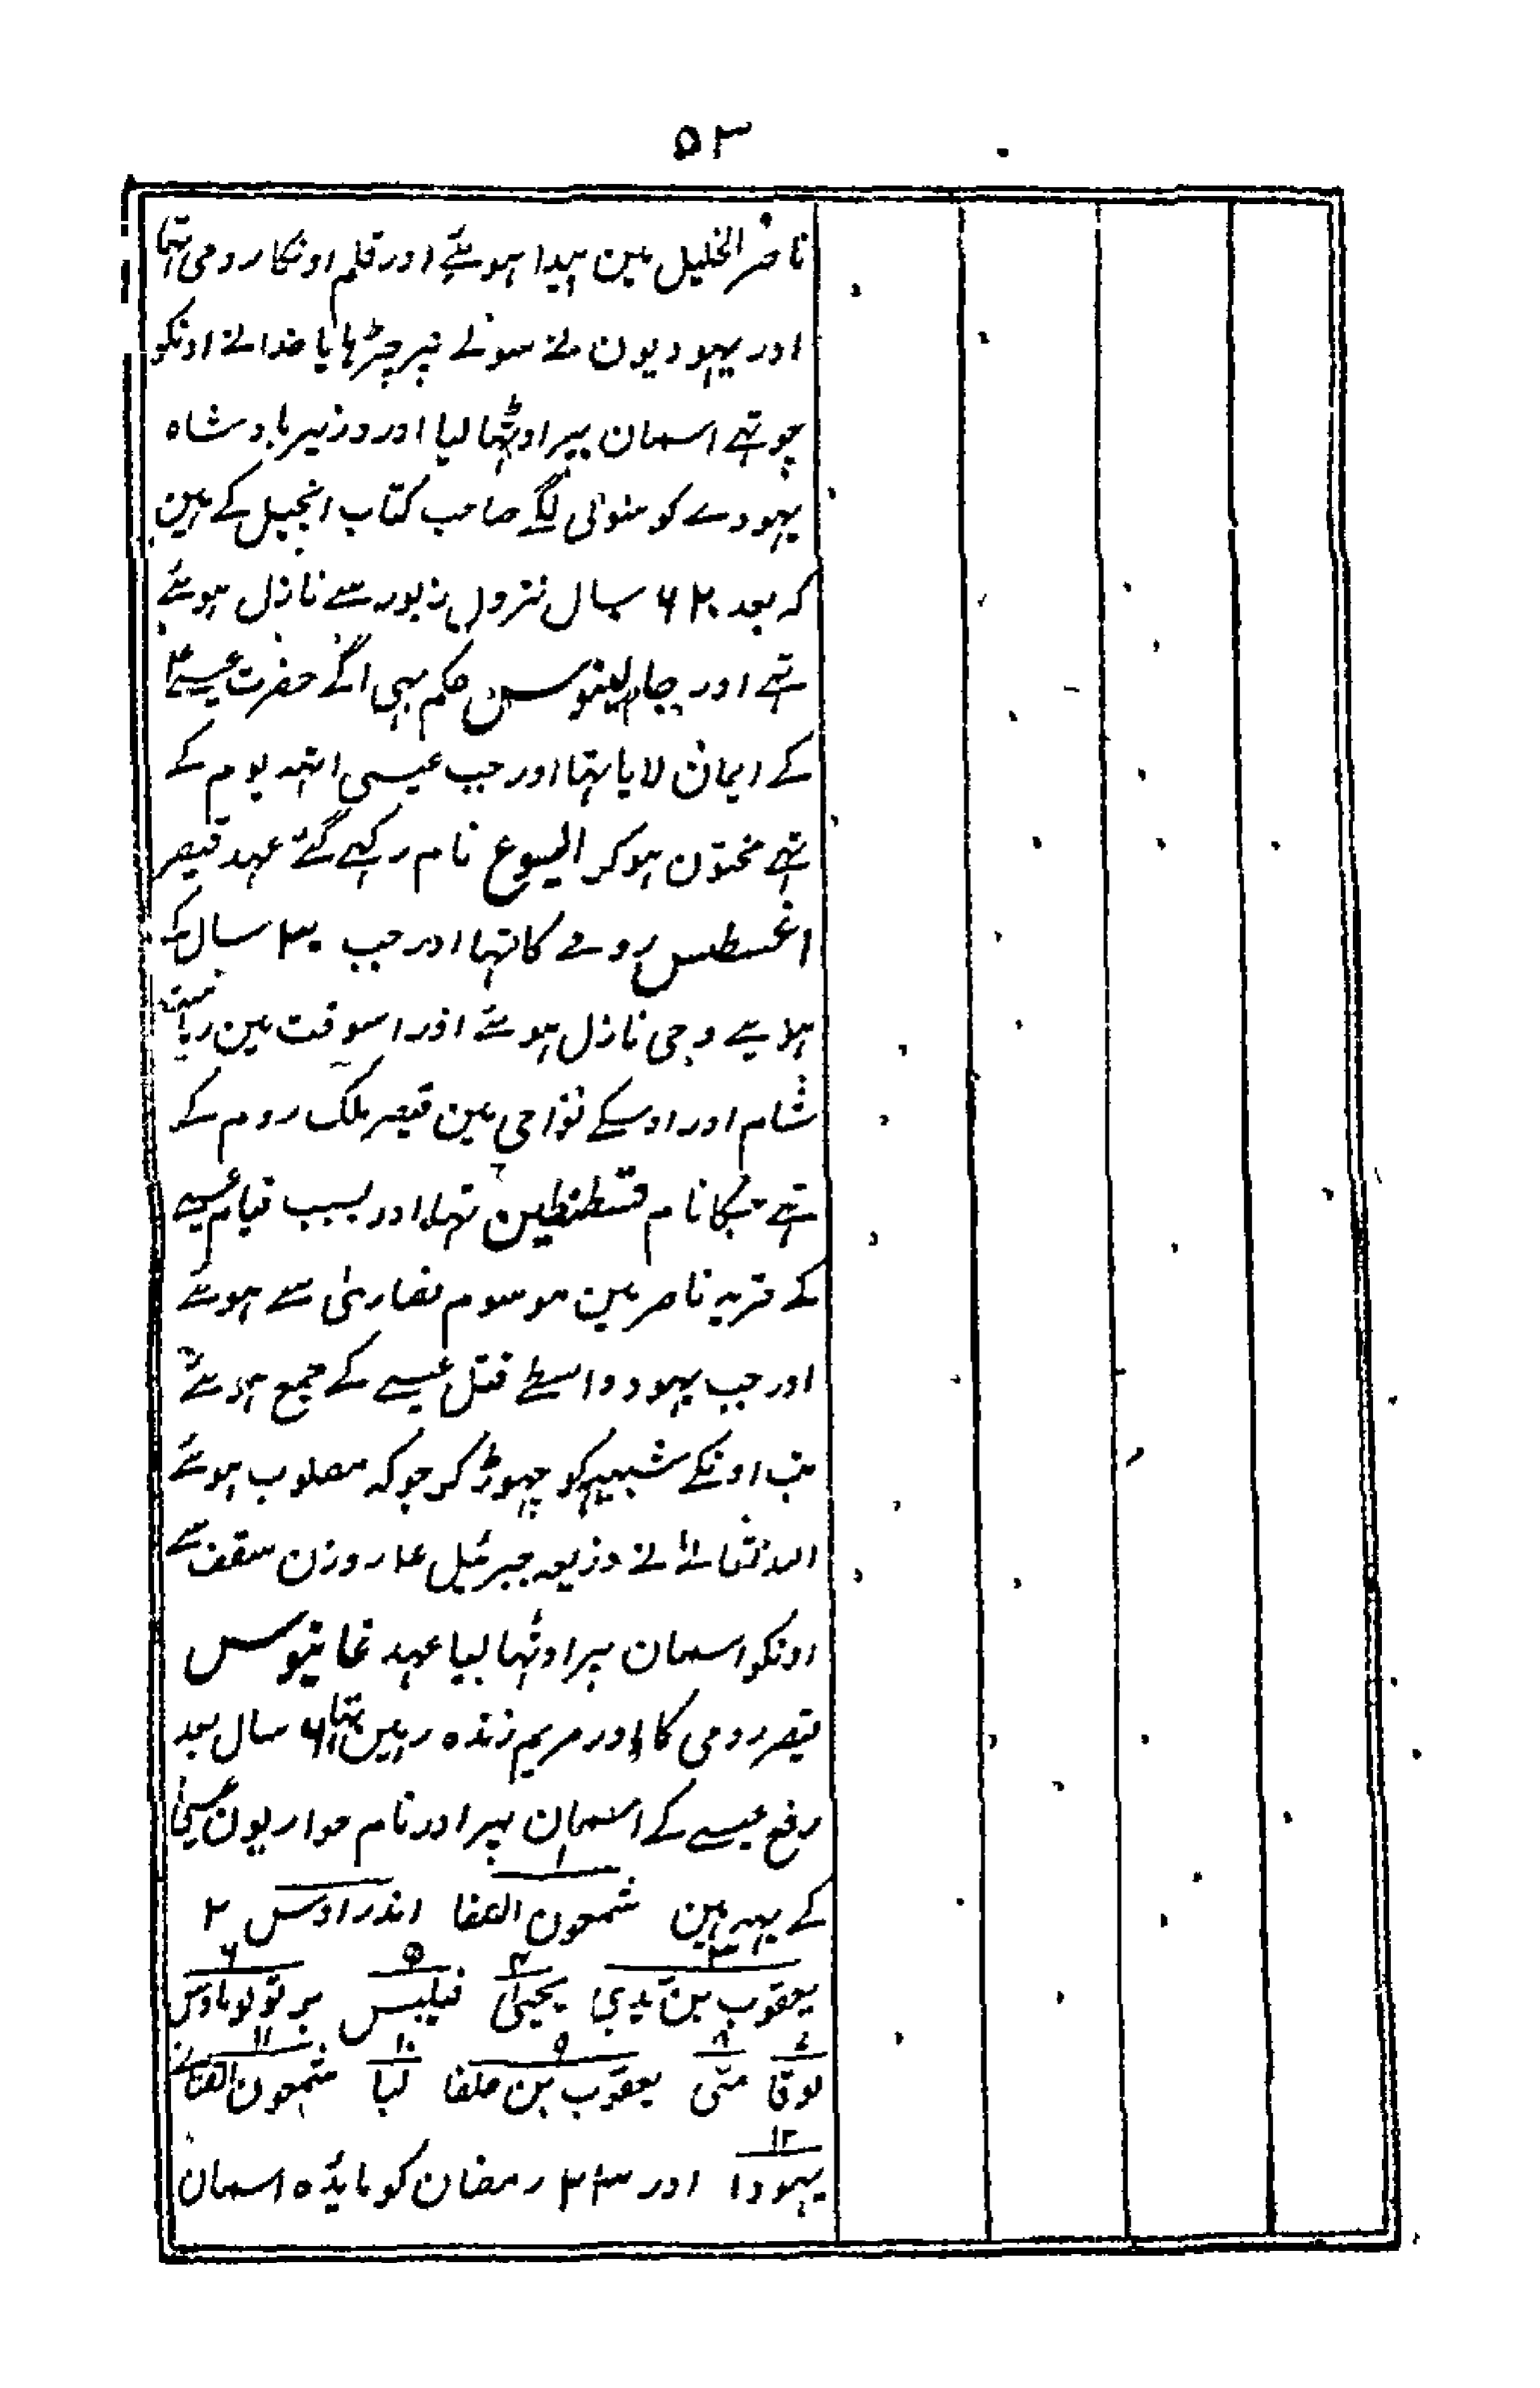 ۵۳
ناصر الخلیل مین پیدا ہوئے اور قلم اونکا رومی تہا
اور یہودیون نے سولے پر چڑہایا خدا نے اونکو
چوتہے اسمان پر اوٹہا لیا اور وزیر بادشاہ
یہودے کو سولی لگے صاحب کتاب انجیل کے ہین
کہ بعد ۶۲۰ سال نزول زبور سے نازل ہوئے
تہے اور جالینوس حکم بہی اگے حضرت عیسےٰ
کے ایمان لایا تہا اور جب عیسی اٹہہ یوم کے
تہے مختون ہوکر الیسوع نام رکہے گئے عہد قیصر
اغسطس رومے کا تہا اور جب ۳۰ سال کے
ہوئے وحی نازل ہوئے اور اسوقت مین ریاست
شام اور اوسکے نواحی مین قیصر ملک روم کے
تہے جسکا نام قسطنطین تہا اور بسبب قیام عیسے
کے قریہ ناصر مین موسوم نصاریٰ سے ہوئے
اور جب یہود واسطے قتل عیسے کے جمع ہوئے
تب اونکے شبیہہ کو چہوڑ کر جوکہ مصلوب ہوئے
اللہ تعالےٰ نے بذریعہ جبرئیل ع روزن سقف سے
اونکو اسمان پر اوٹہا لیا عہد غانیوس
قیصر رومی کا تہا اور مریم زندہ رہین ۶ سال بعد
رفع عیسے کے اسمان پر اور نام حواریون عیسےٰ
کے یہہ ہین ۱ شمعون الصفا ۲ اندراوس
۳ یعقوب بن زبدی ۴ یحییٰ ۵ فیلپس ۶ برتولوماوس
۷ لوقا ۸ متی ۹ یعقوب بن حلفا ۱۰ لبا ۱۱ شمعون القنانے
۱۲ یہودا اور ۲۳ رمضان کو مایدہ اسمان